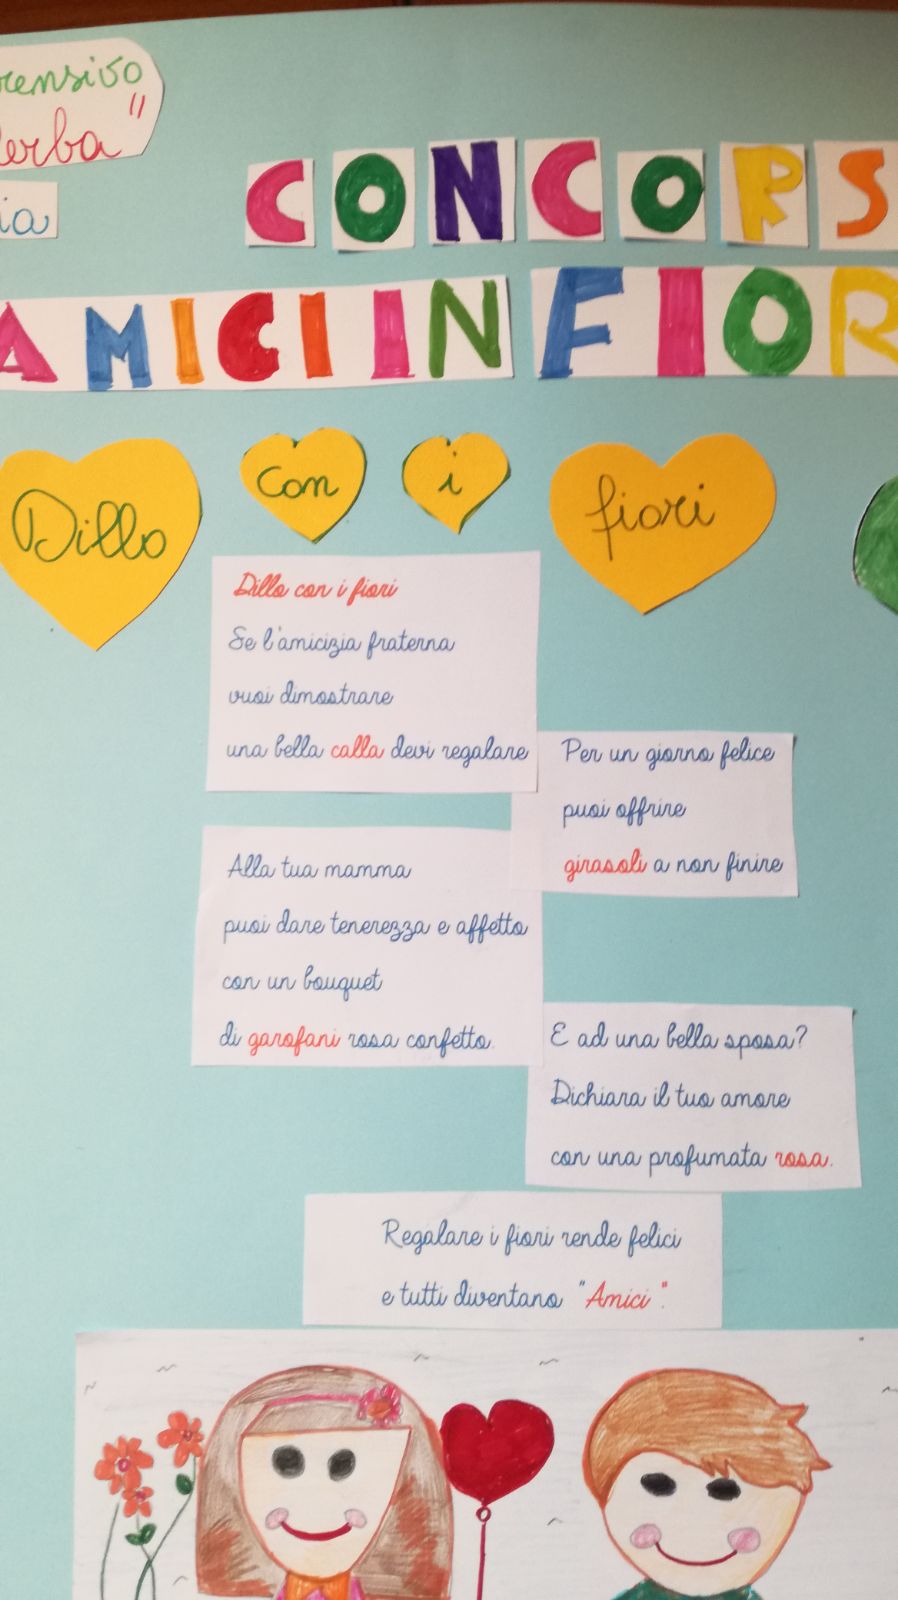 rensivo
erba"
ia
CONCORS
AMICI IN FIOR
Dillo con i fiori
Dillo con i fiori
Se l'amicizia fraterna
vuoi dimostrare
una bella calla devi regalare
Per un giorno felice
puoi offrire
girasoli a non finire
Alla tua mamma
puoi dare tenerezza e affetto
con un bouquet
di garofani rosa confetto.
E ad una bella sposa?
Dichiara il tuo amore
con una profumata rosa.
Regalare i fiori rende felici
e tutti diventano "Amici".